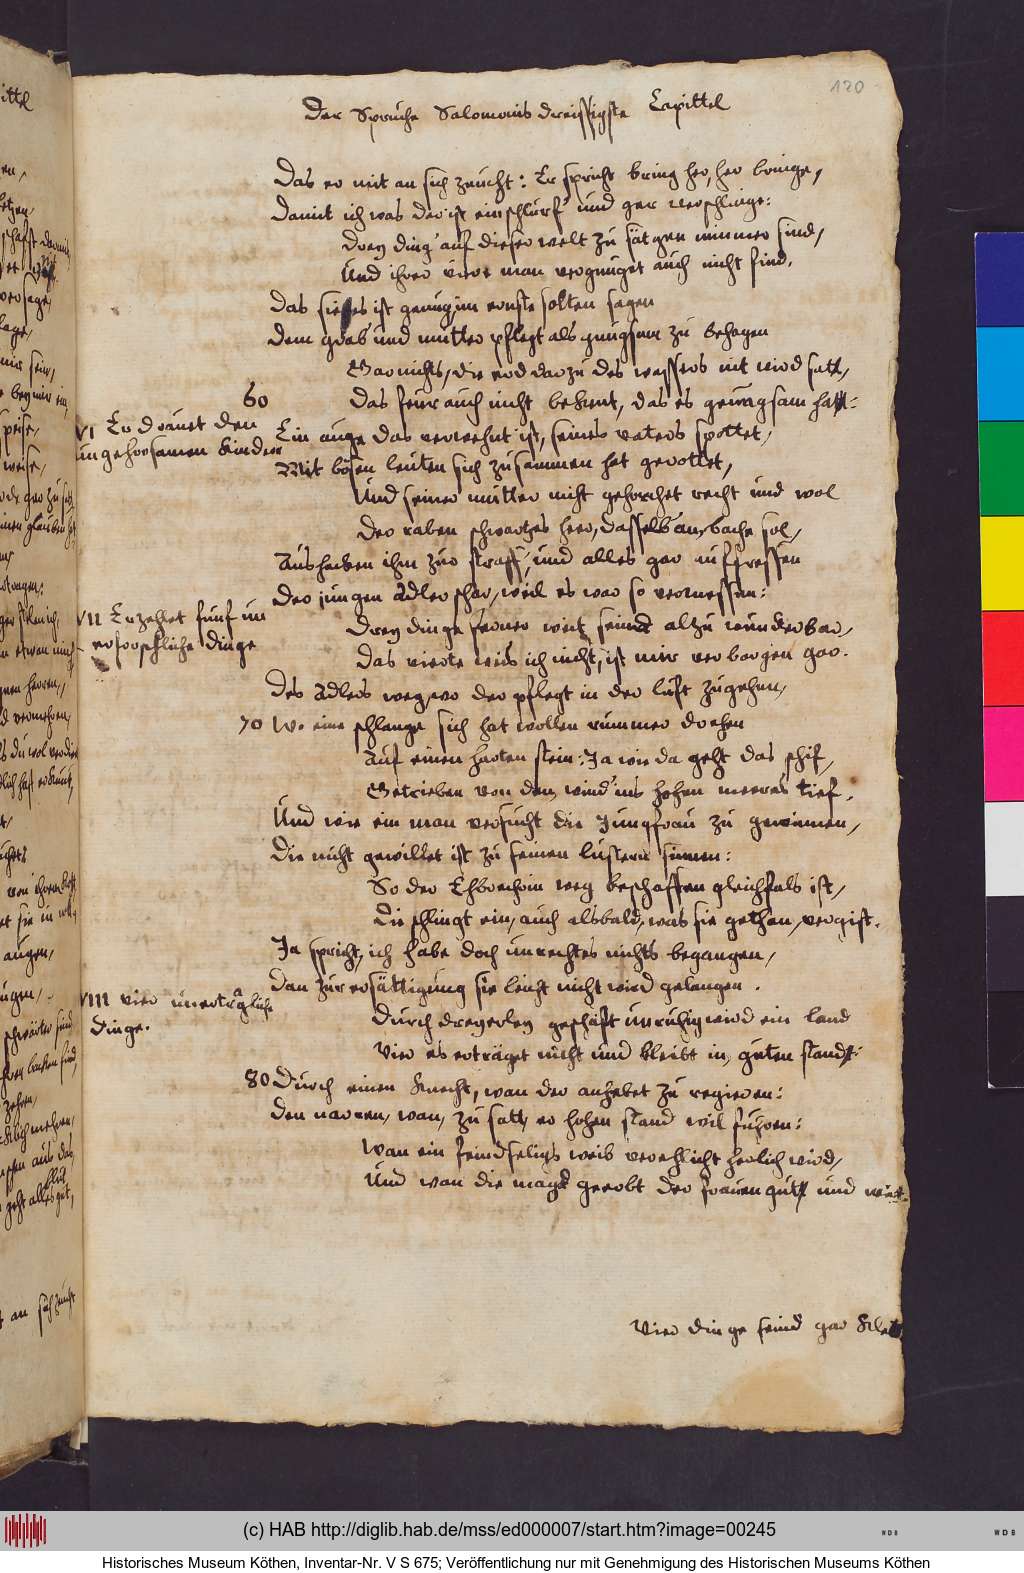 120
Der Spruche Salomonis dreissigste Capittel
Das er mit an sich zeucht: Er spricht bring her, her bringe,
Damit ich was der ist einschlürf' und gar verschlinge:
Drey ding' auf dieser welt zu sätgen nimmer sind,
Und ihrer vier man vergnuget auch nicht find.
Das sie es ist genug im ernste solten sagen
Dem grab' und mutter pflegt als gnugsam zu behagen
Gar nichts, die erd darzu des wassers nit wird satt,
60 Das feur auch nicht bekent, das es genugsam hatt:
VI Er drauet den
ungehorsamen Kinder
Ein auge das verwehnt ist, seines vaters spottet,
Mit bösen leuten sich zusammen hat gerottet,
Und seiner mutter nicht gehorchet recht und wol
Der raben schwartzes heer, dasselb' am bache sol,
Aushacken ihm zur straff', und alles gar auffressen
Der jungen Adler schar, weil es war so vermessen:
VII Erzehlet funf un
erforschliche dinge
Drey dinge ferner weit seind alzu wunderbar,
Das vierte weis ich nicht, ist mir verborgen gar.
Des Adlers weg, wo der pflegt in der luft zugehen,
70 Wo eine schlange sich hat wollen rummer drehen
Auf einen harten stein: Ja wie da geht das schif,
Getrieben von dem wind' ins hohen meeres tief.
Und wie ein man versucht die Jungfrau zu gewinnen,
Die nicht gewillet ist zu seinen lustern sinnen:
So der Ehbrechrin weg beschaffen gleichfals ist,
Die schlingt ein, auch alsbald, was sie gethan, vergist.
Ja spricht, ich habe doch unrechtes nichts begangen,
Dan zur ersättigung sie leicht nicht wird gelangen.
VIII vier unerträgliche
dinge.
Durch dreyerley geschäft unruhig wird ein land
Vier es erträget nicht und bleibt in guten stand:
80 Durch einen Knecht, wan der anhebet zu regieren:
Den narren, wan, zu satt, er hohen stand wil führen:
Wan ein feindseligs weib verehlicht herlich wird,
Und wan die magd geerbt der frauen gutt und
Vier dinge seind gar
(c) HAB http://diglib.hab.de/mss/ed000007/start.htm?image=00245
WDB
WDB
Historisches Museum Köthen, Inventar-Nr. V S 675; Veröffentlichung nur mit Genehmigung des Historischen Museums Köthen